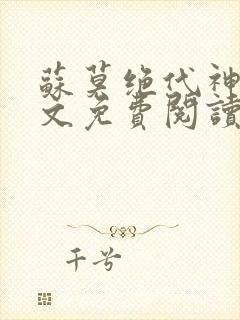 蘇莫绝代神
文免費閱讀
千兮